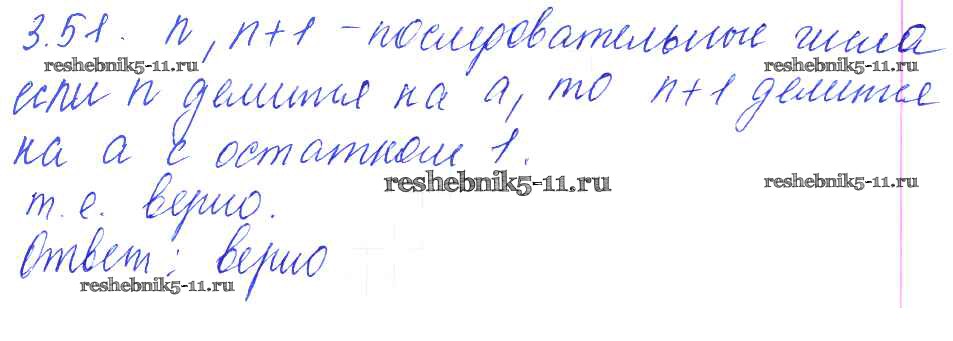 3.51. n, n+1 – последовательные числа
reshebnik5-11.ru reshebnik5-11.ru
если n делится на a, то n+1 делится
на a с остатком 1.
reshebnik5-11.ru reshebnik5-11.ru
т.е. верно.
Ответ: верно
reshebnik5-11.ru